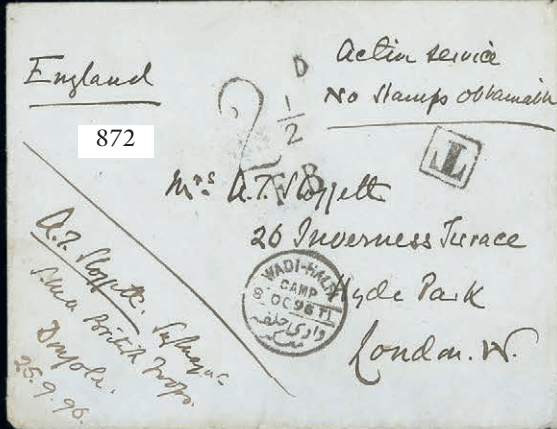 England
Active service
No Stamps Obtainable
D
2 1/2
872
T
Mrs A.T. Sloggett
26 Inverness Terrace
Hyde Park
London. W.
WADI-HALFA
CAMP
8 OC 96 T1
وادى حلفه
معسكر
A.T. Sloggett.
British Troops.
Dongola.
25.9.96.